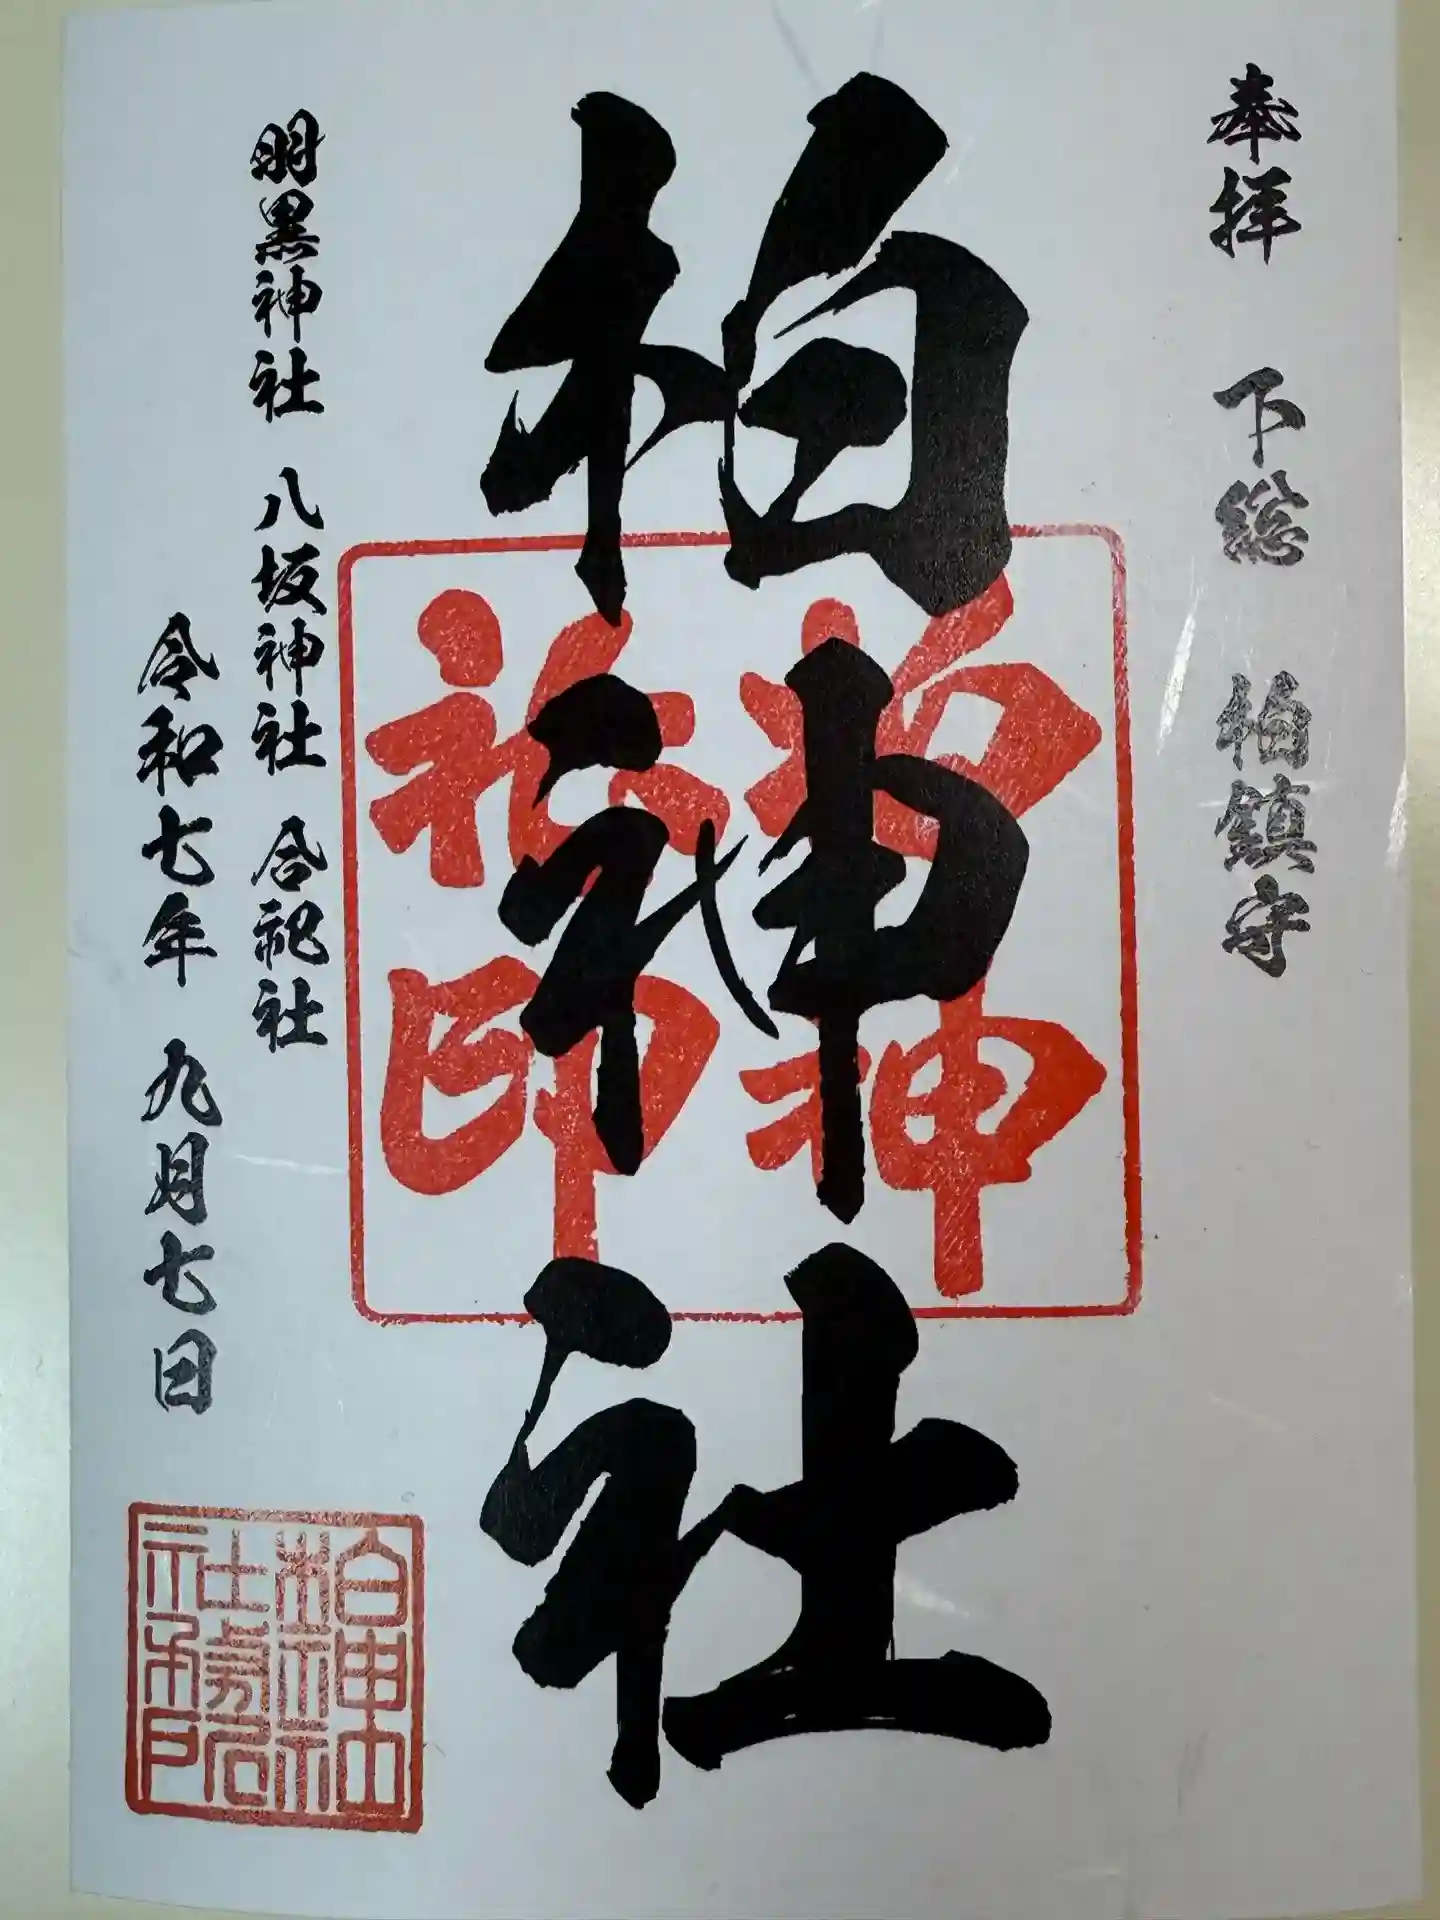 奉拝 下総 柏鎮守
柏神社
柏神
社印
羽黒神社 八坂神社 合祀社
令和七年 九月七日
柏神社
社務所